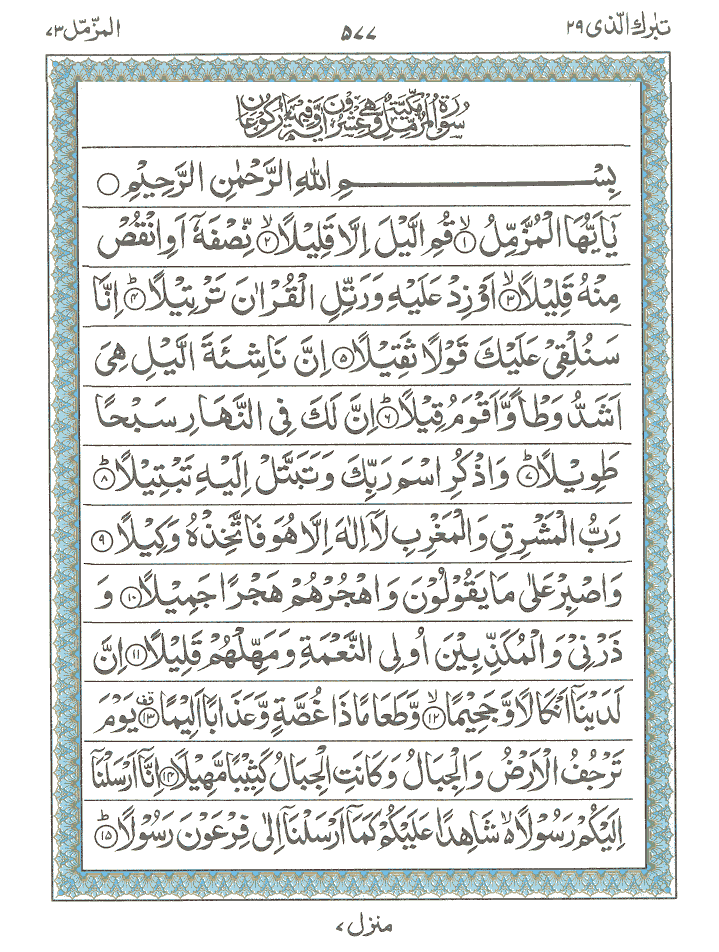 تبٰرك الّذی ۲۹
۵۷۷
المزّمّل ۷۳
سُوْرَةُ الْمُزَّمِّلِ مَكِّيَّةٌ وَّهِيَ عِشْرُوْنَ اٰيَةً وَّفِيْهَا رُكُوْعَانِ
بِسْمِ اللهِ الرَّحْمٰنِ الرَّحِيْمِ ○
يٰۤاَيُّهَا الْمُزَّمِّلُ ۙ﴿۱﴾ قُمِ الَّيْلَ اِلَّا قَلِيْلًا ۙ﴿۲﴾ نِّصْفَهٗۤ اَوِ انْقُصْ
مِنْهُ قَلِيْلًا ۙ﴿۳﴾ اَوْ زِدْ عَلَيْهِ وَ رَتِّلِ الْقُرْاٰنَ تَرْتِيْلًا ؕ﴿۴﴾ اِنَّا
سَنُلْقِيْ عَلَيْكَ قَوْلًا ثَقِيْلًا ﴿۵﴾ اِنَّ نَاشِئَةَ الَّيْلِ هِيَ
اَشَدُّ وَطْاً وَّ اَقْوَمُ قِيْلًا ؕ﴿۶﴾ اِنَّ لَكَ فِي النَّهَارِ سَبْحًا
طَوِيْلًا ؕ﴿۷﴾ وَ اذْكُرِ اسْمَ رَبِّكَ وَ تَبَتَّلْ اِلَيْهِ تَبْتِيْلًا ؕ﴿۸﴾
رَبُّ الْمَشْرِقِ وَ الْمَغْرِبِ لَاۤ اِلٰهَ اِلَّا هُوَ فَاتَّخِذْهُ وَكِيْلًا ﴿۹﴾
وَ اصْبِرْ عَلٰى مَا يَقُوْلُوْنَ وَ اهْجُرْهُمْ هَجْرًا جَمِيْلًا ﴿۱۰﴾ وَ
ذَرْنِيْ وَ الْمُكَذِّبِيْنَ اُولِي النَّعْمَةِ وَ مَهِّلْهُمْ قَلِيْلًا ﴿۱۱﴾ اِنَّ
لَدَيْنَاۤ اَنْكَالًا وَّ جَحِيْمًا ۙ﴿۱۲﴾ وَّ طَعَامًا ذَا غُصَّةٍ وَّ عَذَابًا اَلِيْمًا ۗقف﴿۱۳﴾ يَوْمَ
تَرْجُفُ الْاَرْضُ وَ الْجِبَالُ وَ كَانَتِ الْجِبَالُ كَثِيْبًا مَّهِيْلًا ﴿۱۴﴾ اِنَّاۤ اَرْسَلْنَاۤ
اِلَيْكُمْ رَسُوْلًا ۙ۬ شَاهِدًا عَلَيْكُمْ كَمَاۤ اَرْسَلْنَاۤ اِلٰى فِرْعَوْنَ رَسُوْلًا ؕ﴿۱۵﴾
منزل ۷